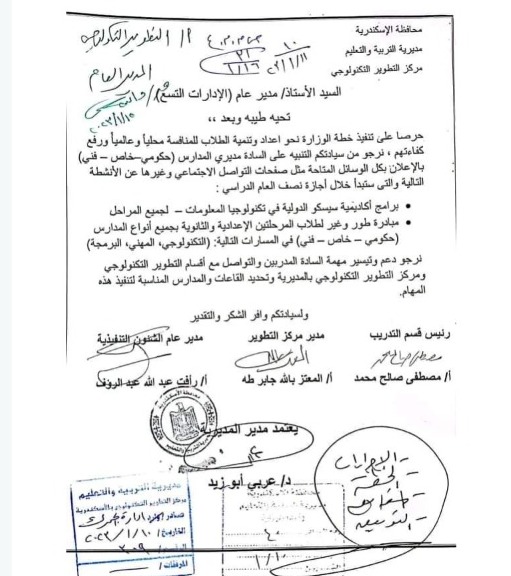 محافظة الإسكندرية
مديرية التربية والتعليم
مركز التطوير التكنولوجي
المدير العام
السيد الأستاذ/ مدير عام (الإدارات التسع)
تحيه طيبه وبعد ،،
حرصا على تنفيذ خطة الوزارة نحو اعداد وتنمية الطلاب للمنافسة محلياً وعالمياً ورفع
كفاءتهم ، نرجو من سيادتكم التنبيه على السادة مديري المدارس (حكومي-خاص – فني)
بالإعلان بكل الوسائل المتاحة مثل صفحات التواصل الاجتماعي وغيرها عن الأنشطة
التالية والتى ستبدأ خلال أجازة نصف العام الدراسي :
• برامج أكاديمية سيسكو الدولية في تكنولوجيا المعلومات – لجميع المراحل
• مبادرة طور وغير لطلاب المرحلتين الإعدادية والثانوية بجميع أنواع المدارس
(حكومي – خاص – فني) في المسارات التالية: (التكنولوجي، المهني، البرمجة)
نرجو دعم وتيسير مهمة السادة المدربين والتواصل مع أقسام التطوير التكنولوجي
ومركز التطوير التكنولوجي بالمديرية وتحديد القاعات والمدارس المناسبة لتنفيذ هذه
المهام.
ولسيادتكم وافر الشكر والتقدير
رئيس قسم التدريب مدير مركز التطوير مدير عام الشئون التنفيذية
أ/ مصطفى صالح محمد أ/ المعتز بالله جابر طه أ/ رأفت عبد الله عبد الرؤف
يعتمد مدير المديرية
د/ عربي أبو زيد
مديرية التربية والتعليم